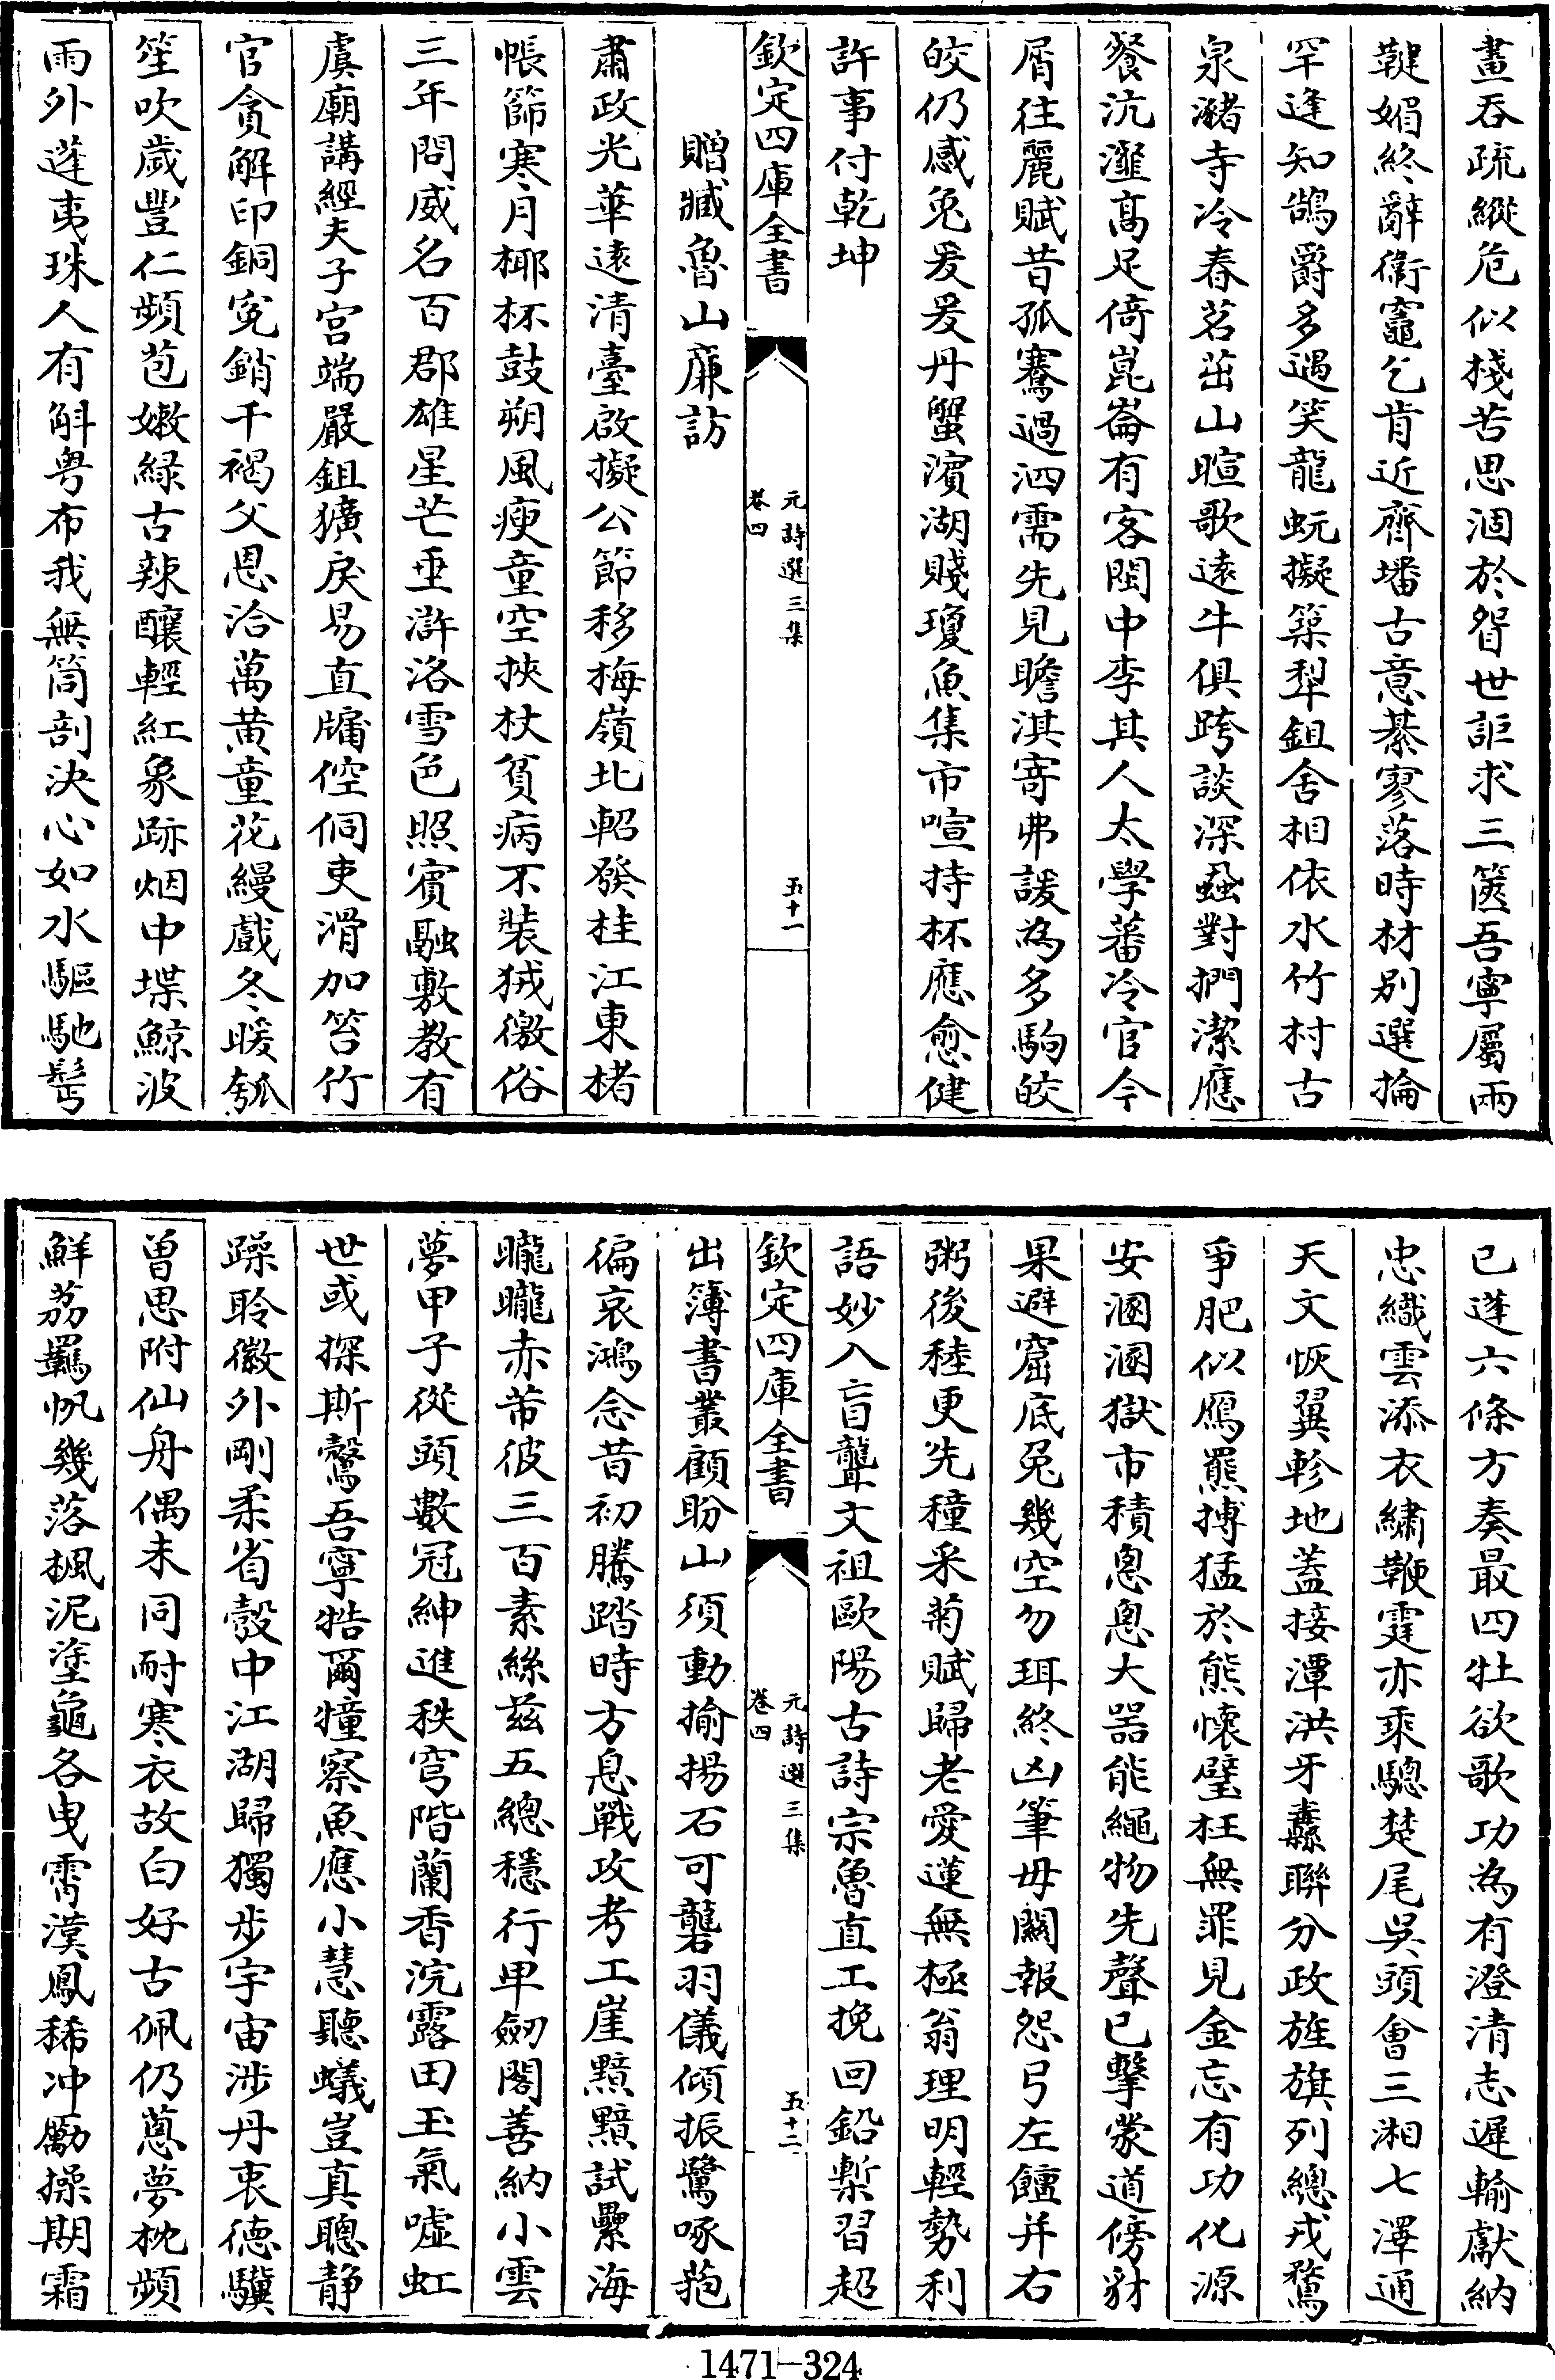 畫吞疏縱危似棧苦思涸於眢世詎求三篋吾寧屬兩
鞬媚終辭衛竈乞肯近齊墦古意綦寥落時材别選掄
罕逢知鵠爵多遇笑龍蚖擬築犁鉏舍相依水竹村古
泉瀦寺冷春茗茁山暄歌遠牛俱跨談深蝨對捫潔應
餐沆瀣高足倚崑崙有客閩中李其人太學蕃冷官今
屑往麗賦昔孤騫過泗需先見瞻淇寄弗諼為多駒皎
皎仍感兔爰爰丹蟹濱湖賤瓊魚集市喧持杯應愈健
許事付乾坤
欽定四庫全書
元詩選三集
卷四
五十一
贈臧魯山亷訪
肅政光華遠清臺啟擬公節移梅嶺北軺發桂江東楮
帳篩寒月椰杯鼓朔風瘦童空挾杖貧病不裝絨徼俗
三年問威名百郡雄星芒垂滸洛雪色照賓融敷教有
虞廟講經夫子宮端嚴鉏獷戾易直牖倥侗吏滑加笞竹
官貪解印銅寃銷千褐父恩洽萬黄童花縵戲冬暖瓠
笙吹嵗豐仁頻苞嫰緑古辣釀輕紅象跡烟中堞鯨波
雨外蓬夷珠人有斛粤布我無筒剖決心如水驅馳髩
已蓬六條方奏最四牡欲歌功為有澄清志遲輸獻納
忠織雲添衣繡鞭霆亦乘驄楚尾吳頭㑹三湘七澤通
天文恢翼軫地蓋接潭洪牙纛聯分政旌旗列總戎鶩
爭肥似鴈羆搏猛於熊懷璧枉無罪見金忘有功化源
安溷溷獄市積悤悤大噐能繩物先聲已擊蒙道傍豺
果避窟底兔幾空勿珥終凶筆毋闗報怨弓左饘并右
粥後稑更先穜采菊賦歸老愛蓮無極翁理明輕勢利
語妙入盲聾文祖歐陽古詩宗魯直工挽回鉛槧習超
欽定四庫全書
元詩選三集
卷四
五十二
出簿書叢顧盼山須動揄揚石可礱羽儀傾振鷺啄菢
徧哀鴻念昔初騰踏時方息戰攻考工崖黯黯試纍海
矓矓赤芾彼三百素絲兹五總穩行毕劒閣善納小雲
夢甲子從頭數冠紳進秩穹階蘭香浣露田玉氣嘘虹
世或探斯鷟吾寧牿爾犝察魚應小慧聽蟻豈真聰静
躁聆徽外剛柔省彀中江湖歸獨步宇宙渉丹衷徳驥
曽思附仙舟偶未同耐寒衣故白好古佩仍蔥夢枕頻
鮮荔羈帆幾落楓泥塗龜各曳霄漢鳳稀冲勵操期霜
1471-324